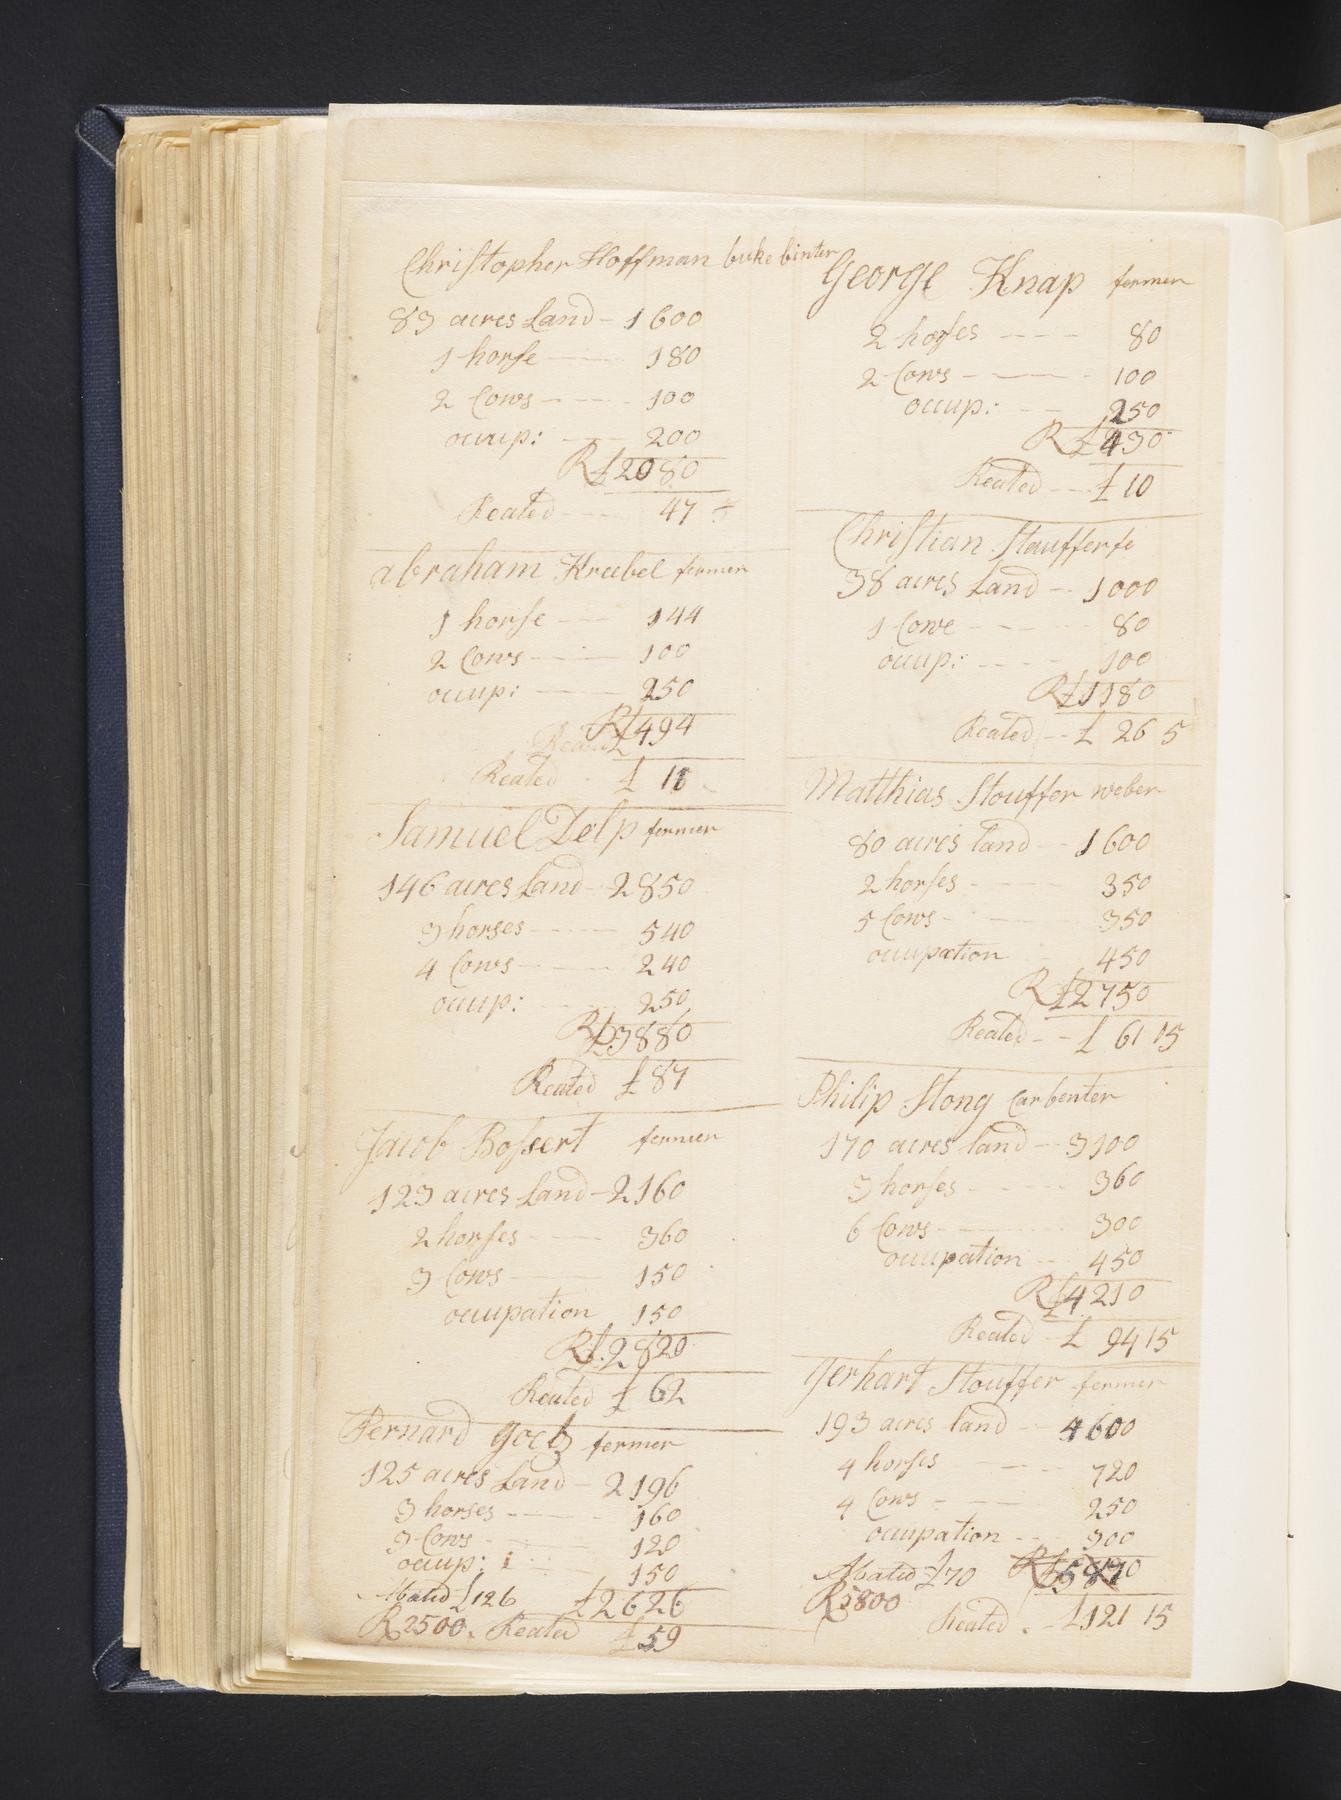 Christopher Hoffman buke binter
83 acres Land - 1600
1 horse 180
2 Cows 100
occup: 200
R £2080
Reated 47 5
abraham Kriebel fermer
1 horse 144
2 Cows 100
occup: 250
R £494
Reated £ 11
Samuel Delp fermer
146 acres Land 2850
3 horses 540
4 Cows 240
occup: 250
R £3880
Reated £ 87
Jacob Bossert fermer
123 acres Land - 2160
2 horses 360
3 Cows 150
occupation 150
R £2820
Reated £ 62
Bernard goetz fermer
125 acres Land - 2196
3 horses 160
3 Cows 120
occup: 150
Abated £126 £2626
R 2500. Reated £59
George Knap fermer
2 horses 80
2 Cows 100
occup: 250
R £430
Reated £ 10
Christian Stauffer fe
38 acres Land - 1000
1 Cowe 80
occup: 100
R £1180
Reated £ 26 5
Matthias Stouffer weber
80 acres land 1600
2 horses 350
5 Cows 350
occupation 450
R £2750
Reated - £ 61 15
Philip Stong Carbenter
170 acres land - 3100
3 horses 360
6 Cows 300
occupation 450
R £4210
Reated - £ 94 15
Gerhart Stouffer fermer
193 acres land 4600
4 horses 720
4 Cows 250
occupation 300
Abated £70 R £5870
R 5800
Reated £121 15